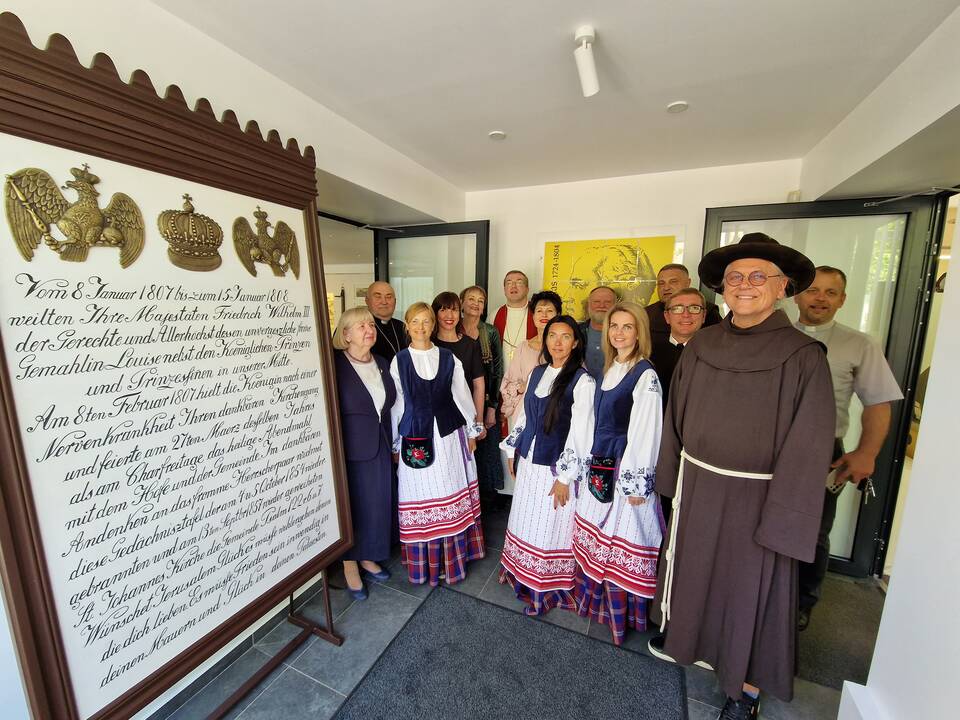 Vom 8 Januar 1807 bis zum 15 Januar 1808
weilten Ihre Majestäten Friedrich Wilhelm III
der Gerechte und Allerhöchst dessen unvergessliche fromme
Gemahlin Louise nebst den Koeniglichen Prinzen
und Prinzessinen in unserer Mitte.
Am 8ten Februar 1807 hielt die Koenigin nach einer
Nervenkrankheit Ihren dankbaren Kirchengang
und feierte am 27ten Maerz desselben Jahres
als am Charfreitage das heilige Abendmahl
mit dem Hofe und der Gemeinde Im dankbaren
Andenken an das fromme Herrscherpaar widmet
diese Gedächnistafel der am 4 u 5 October 1854 nieder
gebrannten und am 13ten Septbr 1857 wieder geweihten
St. Johannes Kirche die Gemeinde Psalm 122 6 u 7
Wünschet Jerusalem Glück es müsse wohlergehen denen
die dich lieben Es müsse Frieden sein inwendig in
deinen Mauern und Glück in deinen Palaesten
1724-1804